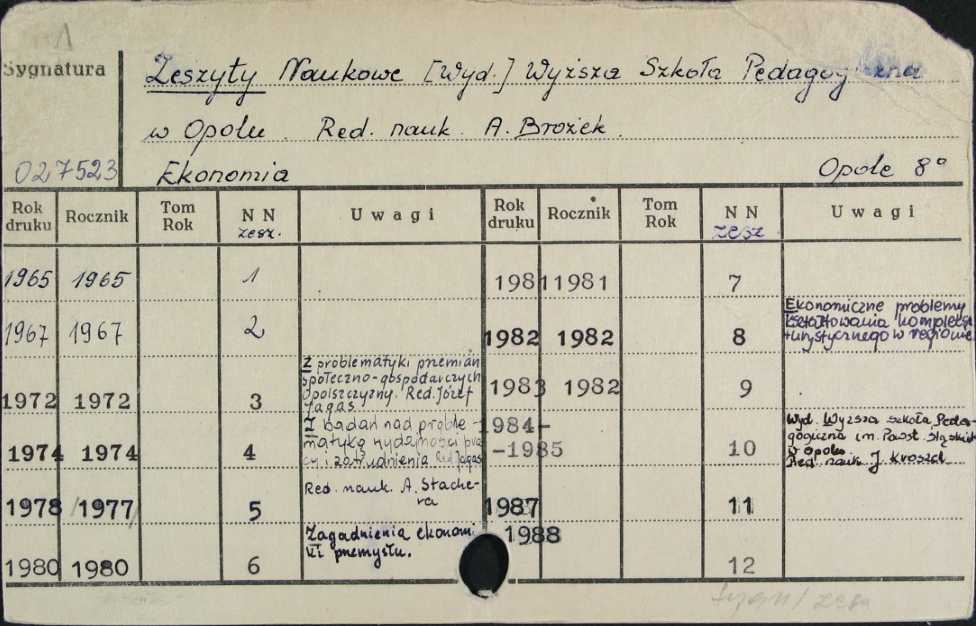 Sygnatura
Zeszyty Naukowe [Wyd.] Wyższa Szkoła Pedagogiczna
w Opolu. Red. nauk. A. Brożek.
027523 Ekonomia Opole 8°
Rok druku Rocznik Tom Rok NN zesz. Uwagi Rok druku Rocznik Tom Rok NN zesz Uwagi
1965 1965 1
1967 1967 2
1972 1972 3 Z problematyki przemian
społeczno-gospodarczych
Opolszczyzny. Red. Józef
Jagas.
1974 1974 4 Z badań nad proble-
matyką wydajności pra
cy i zatrudnienia. Red Jagas
1978 1977 5 Red. nauk. A. Stache-
ra
1980 1980 6 Zagadnienia ekonomi
ki przemysłu.
1981 1981 7
1982 1982 8 Ekonomiczne problemy
kształtowania kompleksu
turystycznego w regionie
1983 1982 9
1984-
-1985 10 Wyd. Wyższa szkoła Peda-
gogiczna im. Powst. Śląskich
w Opolu.
Red. nauk J. Kroszel
1987 11
1988 12
sygn/zesz